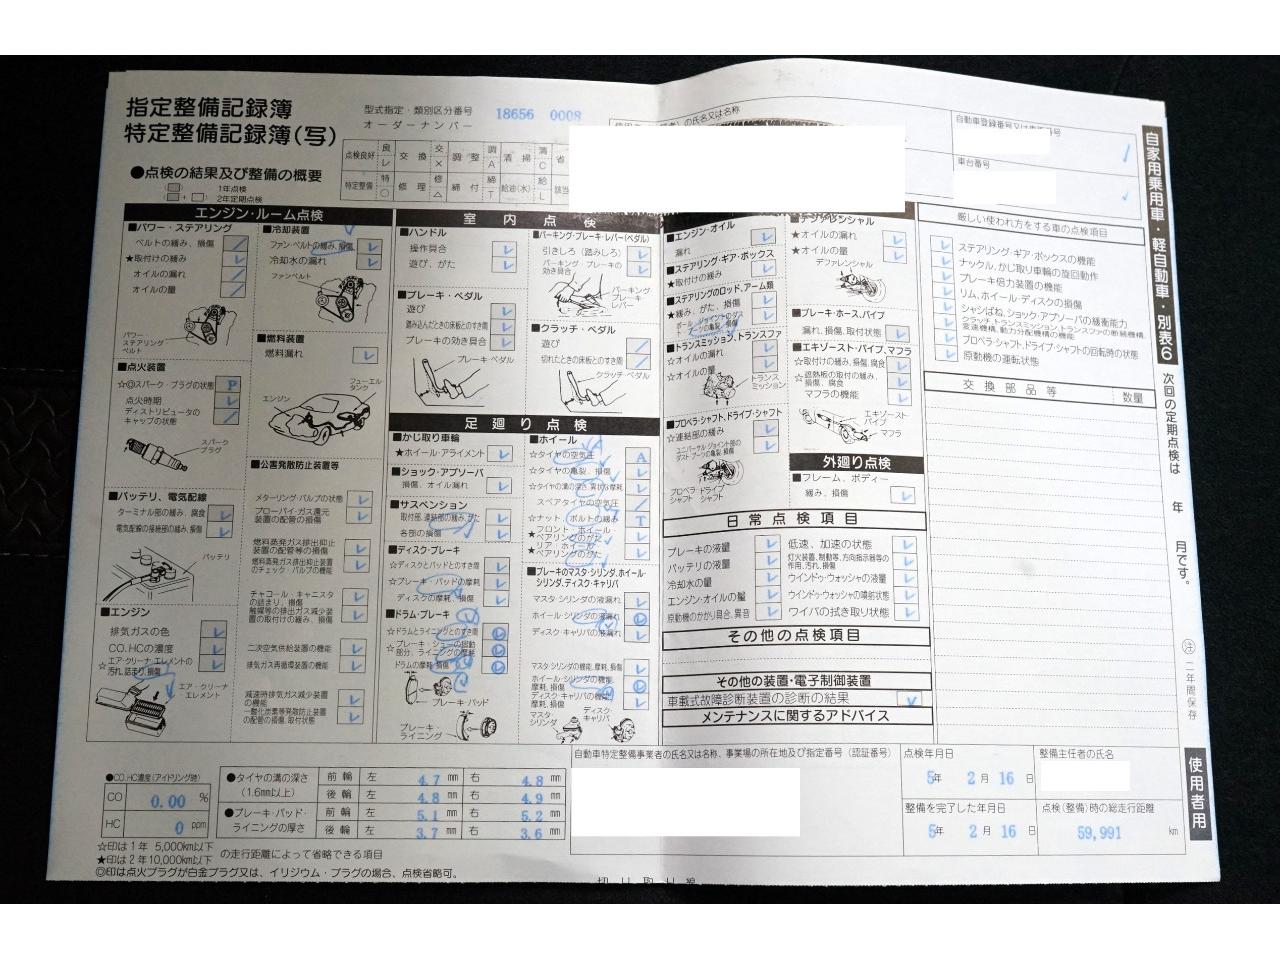 指定整備記録簿
特定整備記録簿(写)
型式指定・類別区分番号 18656 0008
オーダーナンバー
の氏名又は名称
車台番号
点検良好 レ 交換 × 調整 A 清掃 C 省
特定整備 ○ 修理 △ 締付 T 給油(水) L 該当
●点検の結果及び整備の概要
1年点検
2年定期点検
エンジン・ルーム点検
■パワー・ステアリング
ベルトの緩み、損傷
★取付けの緩み
オイルの漏れ
オイルの量
パワー・ステアリングベルト
■点火装置
☆◎スパーク・プラグの状態 P
点火時期
ディストリビュータのキャップの状態
スパークプラグ
■バッテリ、電気配線
ターミナル部の緩み、腐食
電気配線の接続部の緩み、損傷
バッテリ
■エンジン
排気ガスの色
CO、HCの濃度
☆エア・クリーナ・エレメントの汚れ、詰まり、損傷
エア・クリーナエレメント
■冷却装置
ファン・ベルトの緩み、損傷
冷却水の漏れ
ファンベルト
■燃料装置
燃料漏れ
フューエルタンク
エンジン
■公害発散防止装置等
メターリング・バルブの状態
ブローバイ・ガス還元装置の配管の損傷
燃料蒸発ガス排出抑止装置の配管等の損傷
燃料蒸発ガス排出抑止装置のチェック・バルブの機能
チャコール・キャニスタの詰まり、損傷
触媒等の排出ガス減少装置の取付けの緩み、損傷
二次空気供給装置の機能
排気ガス再循環装置の機能
減速時排気ガス減少装置の機能
一酸化炭素等発散防止装置の配管の損傷、取付状態
室内点検
■ハンドル
操作具合
遊び、がた
■ブレーキ・ペダル
遊び
踏み込んだときの床板とのすき間
ブレーキの効き具合
ブレーキ・ペダル
■パーキング・ブレーキ・レバー(ペダル)
引きしろ(踏みしろ)
パーキング・ブレーキの効き具合
パーキングブレーキレバー
■クラッチ・ペダル
遊び
切れたときの床板とのすき間
クラッチ・ペダル
足廻り点検
■かじ取り車輪
★ホイール・アライメント
■ショック・アブソーバ
損傷、オイル漏れ
■サスペンション
取付部、連結部の緩み、がた
各部の損傷
■ディスク・ブレーキ
☆ディスクとパッドとのすき間
☆ブレーキ・パッドの摩耗
ディスクの摩耗、損傷
■ドラム・ブレーキ
☆ドラムとライニングとのすき間
☆ブレーキ・シューの摺動部分、ライニングの摩耗
ドラムの摩耗、損傷
ブレーキ・パッド
ブレーキ・ライニング
■ホイール
☆タイヤの空気圧 A
☆タイヤの亀裂、損傷
☆タイヤの溝の深さ、異状な摩耗
スペアタイヤの空気圧
☆ナット、ボルトの緩み T
★フロント・ホイール・ベアリングのがた
★リア・ホイール・ベアリングのがた
■ブレーキのマスタ・シリンダ、ホイール・シリンダ、ディスク・キャリパ
マスタ・シリンダの液漏れ
ホイール・シリンダの液漏れ
ディスク・キャリパの液漏れ
マスタ・シリンダの機能、摩耗、損傷
ホイール・シリンダの機能、摩耗、損傷
ディスク・キャリパの機能、摩耗、損傷
マスタシリンダ
ディスク・キャリパ
■エンジン・オイル
漏れ
■ステアリング・ギア・ボックス
★取付けの緩み
■ステアリングのロッド、アーム類
★緩み、がた、損傷
ボール・ジョイントのダスト・ブーツの亀裂、損傷
■トランスミッション、トランスファ
☆オイルの漏れ
☆オイルの量
トランスミッション
■プロペラ・シャフト、ドライブ・シャフト
☆連結部の緩み
ユニバーサル・ジョイント部のダスト・ブーツの亀裂、損傷
プロペラ・シャフト
ドライブ・シャフト
■デファレンシャル
★オイルの漏れ
★オイルの量
デファレンシャル
■ブレーキ・ホース、パイプ
漏れ、損傷、取付状態
■エキゾースト・パイプ、マフラ
☆取付けの緩み、損傷、腐食
☆遮熱板の取付の緩み、損傷、腐食
マフラの機能
エキゾーストパイプ
マフラ
外廻り点検
■フレーム、ボディー
緩み、損傷
日常点検項目
ブレーキの液量
バッテリの液量
冷却水の量
エンジン・オイルの量
原動機のかかり具合、異音
低速、加速の状態
灯火装置、制動等、方向指示器等の作用、汚れ、損傷
ウインドゥ・ウォッシャの液量
ウインドゥ・ウォッシャの噴射状態
ワイパの拭き取り状態
その他の点検項目
その他の装置・電子制御装置
車載式故障診断装置の診断の結果
メンテナンスに関するアドバイス
厳しい使われ方をする車の点検項目
ステアリング・ギア・ボックスの機能
ナックル、かじ取り車輪の旋回動作
ブレーキ倍力装置の機能
リム、ホイール・ディスクの損傷
シャシばね、ショック・アブソーバの緩衝能力
クラッチ、トランスミッション、トランスファの断接機構、変速機構、動力分配機構の機能
プロペラシャフト、ドライブ・シャフトの回転時の状態
原動機の運転状態
交換部品等 数量
自家用乗用車・軽自動車・別表6
次回の定期点検は 年 月です。
注 二年間保存
使用者用
●CO、HC濃度(アイドリング時)
CO 0.00 %
HC 0 ppm
●タイヤの溝の深さ(1.6mm以上)
前輪 左 4.7 mm 右 4.8 mm
後輪 左 4.8 mm 右 4.9 mm
●ブレーキ・パッド・ライニングの厚さ
前輪 左 5.1 mm 右 5.2 mm
後輪 左 3.7 mm 右 3.6 mm
自動車特定整備事業者の氏名又は名称、事業場の所在地及び指定番号(認証番号)
点検年月日
5年 2月 16日
整備主任者の氏名
整備を完了した年月日
5年 2月 16日
点検(整備)時の総走行距離
59,991 km
☆印は1年 5,000km以下
★印は2年10,000km以下 の走行距離によって省略できる項目
◎印は点火プラグが白金プラグ又は、イリジウム・プラグの場合、点検省略可。
切り取り線